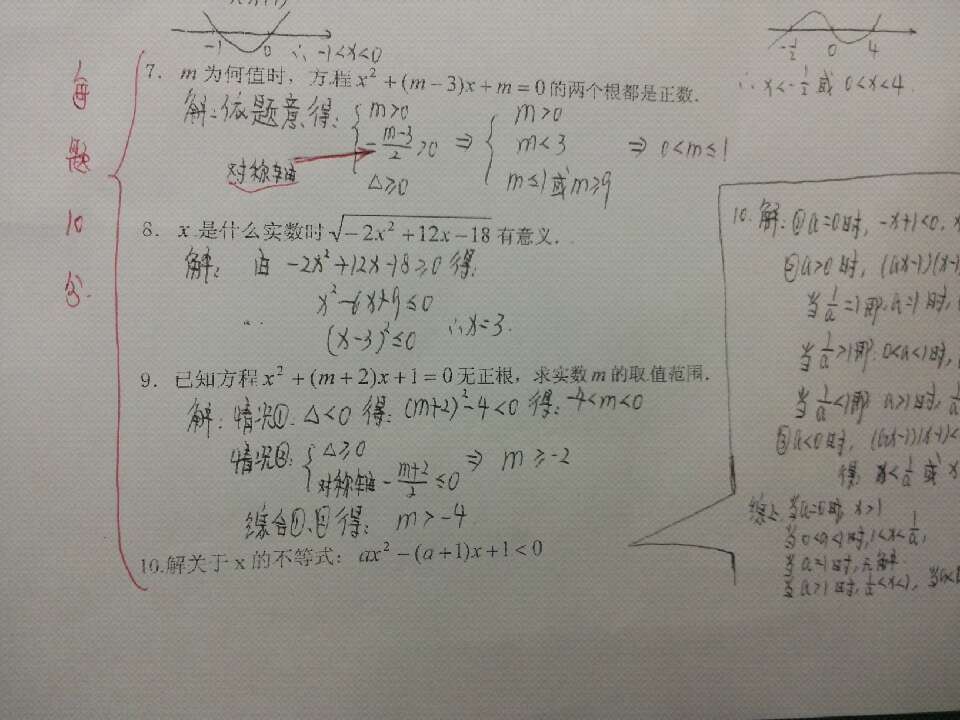 -1 0 ∴ -1<x<0
-1/2 0 4
∴ x<-1/2 或 0<x<4.
每题10分.
7. m 为何值时，方程 x²+(m-3)x+m=0 的两个根都是正数.
解：依题意，得：{ m>0
-(m-3)/2>0
△≥0
⇒ { m>0
m<3
m≤1或m≥9
⇒ 0<m≤1
对称轴
8. x 是什么实数时 √(-2x²+12x-18) 有意义.
解： 由 -2x²+12x-18≥0 得：
x²-6x+9≤0
(x-3)²≤0 ∴x=3.
9. 已知方程 x²+(m+2)x+1=0 无正根，求实数 m 的取值范围.
解：情况①. △<0 得：(m+2)²-4<0 得：-4<m<0
情况②：{ △≥0
对称轴 -(m+2)/2≤0
⇒ m≥-2
综合①、②得： m>-4
10.解关于 x 的不等式：ax²-(a+1)x+1<0
10. 解：①a=0时， -x+1<0. x
②a>0时，(ax-1)(x-1)
当1/a=1即：a=1时，
当1/a>1即：0<a<1时，
当1/a<1即：a>1时，1/a
③a<0时， (ax-1)(x-1)<
得：x<1/a 或 x
综上：当a=0时 x>1
当0<a<1时，1<x<1/a；
当a=1时，无解
当a>1时，1/a<x<1， 当a<